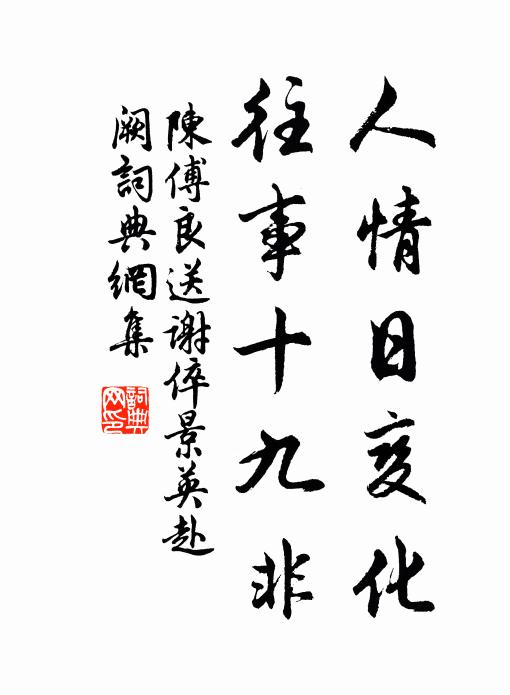 人情日变化
往事十九非
陳傅良送謝倅景英赴
闕詞典網集
詞典
网印